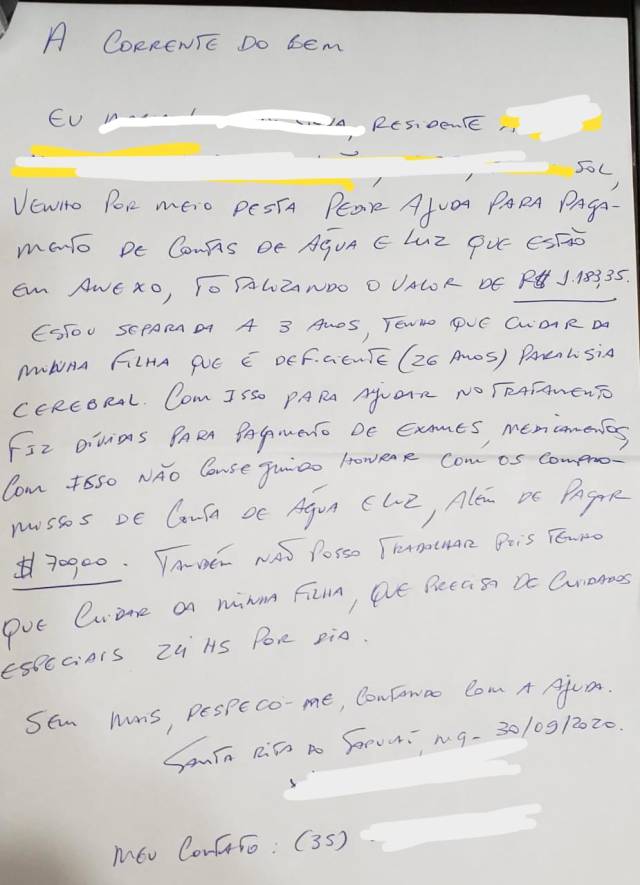 A CORRENTE DO BEM
EU , RESIDENTE
SOL,
VENHO POR MEIO DESTA PEDIR AJUDA PARA PAGA-
MENTO DE CONTAS DE ÁGUA E LUZ QUE ESTÃO
EM ANEXO, TOTALIZANDO O VALOR DE R$ 1.183,35.
ESTOU SEPARADA A 3 ANOS, TENHO QUE CUIDAR DA
MINHA FILHA QUE É DEFICIENTE (26 ANOS) PARALISIA
CEREBRAL. COM ISSO PARA AJUDAR NO TRATAMENTO
FIZ DÍVIDAS PARA PAGIMENTO DE EXAMES, MEDICAMENTOS,
COM ISSO NÃO CONSEGUINDO HONRAR COM OS COMPRO-
MISSOS DE CONTA DE ÁGUA E LUZ, ALÉM DE PAGAR
$ 700,00. TAMBÉM NÃO POSSO TRABALHAR POIS TENHO
QUE CUIDAR DA MINHA FILHA, QUE PRECISA DE CUIDADOS
ESPECIAIS 24 HS POR DIA.
SEM MAIS, DESPEÇO-ME, CONTANDO COM A AJUDA.
SANTA RITA DO SAPUCAÍ, MG - 30/09/2020.
MEU CONTATO: (35)